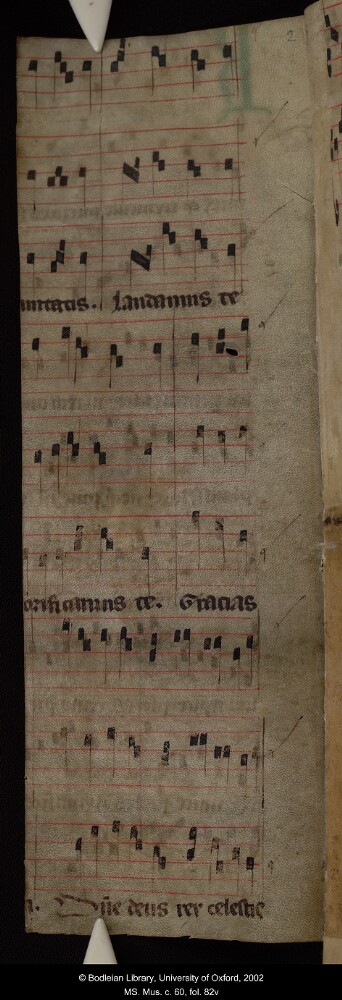 2
luntatis. Laudamus te
orificamus te. Gracias
Dñe deus rex celestis
© Bodleian Library, University of Oxford, 2002
MS. Mus. c. 60, fol. 82v